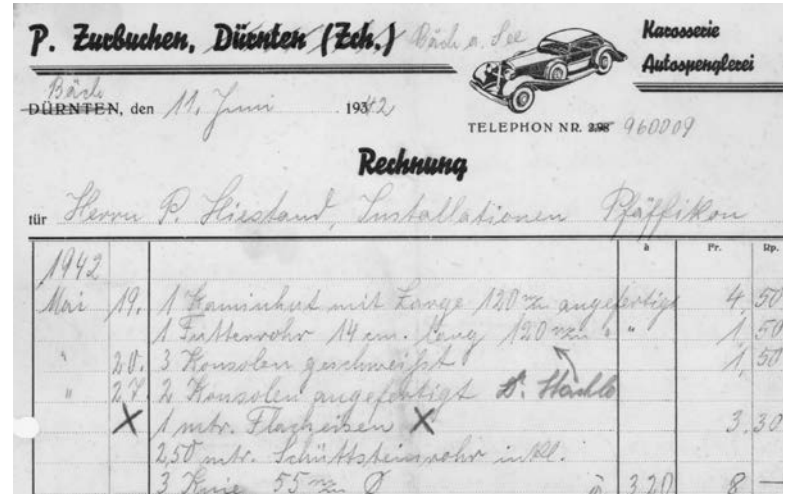 P. Zurbuchen, Dürnten (Zch.) Bäch a. See
Karosserie
Autospenglerei
Bäch
DÜRNTEN, den 11. Juni 1942
TELEPHON NR. 2.98 960009
Rechnung
für Herrn P. Hiestand, Installationen Pfäffikon
à Fr. Rp.
1942
Mai 19. 1 Kaminhut mit Zarge 120 m/m angefertigt 4,50
1 Futterrohr 14 cm. lang 120 m/m " " 1,50
" 20. 3 Konsolen geschweißt 1,50
" 27. 2 Konsolen angefertigt
X 1 mtr. Flacheisen X 3.30
2,50 mtr. Schüttsteinrohr inkl.
3 Knie 55 m/m Ø à 3.20 8 —